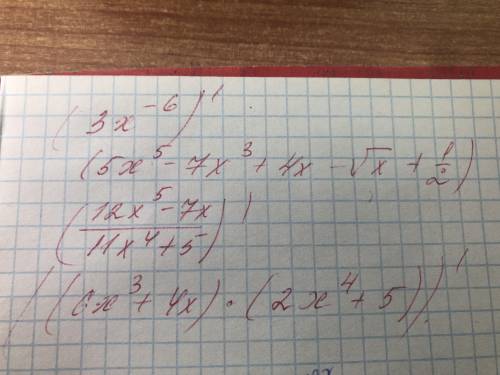 (3x⁻⁶)'
(5x⁵ - 7x³ + 4x - √x + 1/2)
((12x⁵ - 7x)/(11x⁴ + 5))'
((6x³ + 4x) · (2x⁴ + 5))'